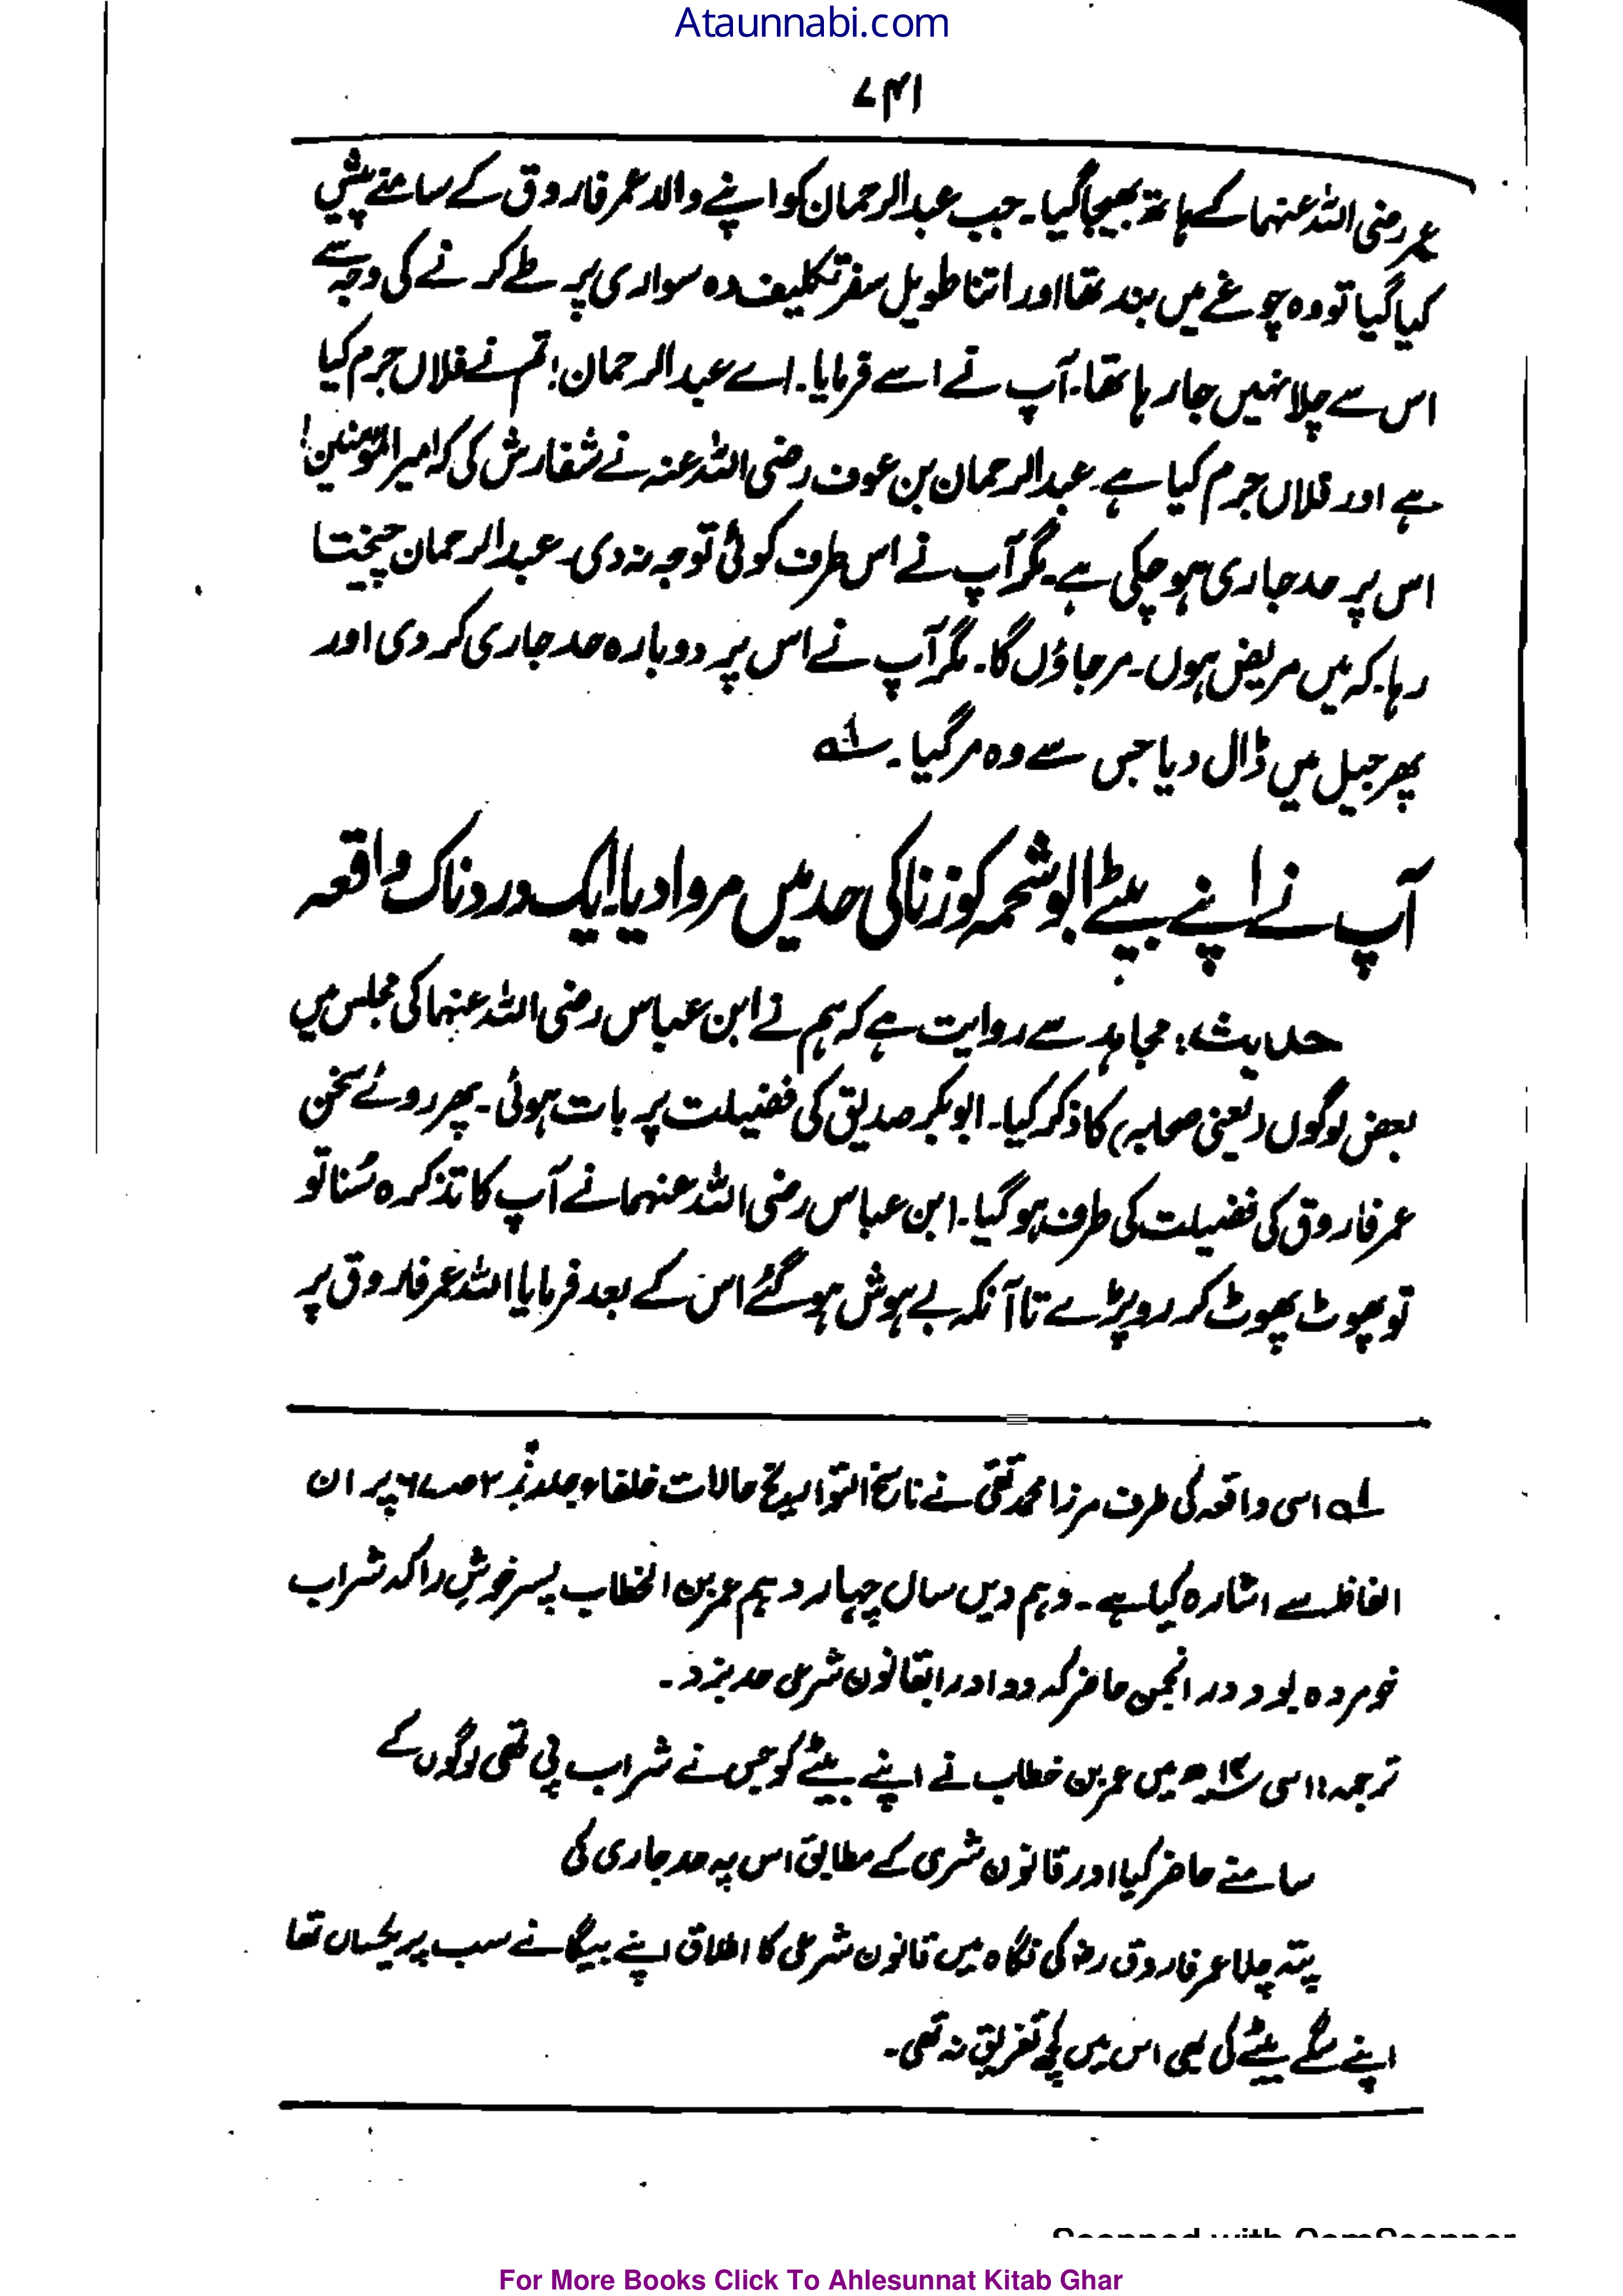 Ataunnabi.com
۷۴۱
عمر رضی اللہ عنہما کے ہاتھ بھیجا گیا۔ جب عبدالرحمان کو اپنے والد عمر فاروق کے سامنے پیش
کیا گیا تو وہ چوغے میں بند تھا اور اتنا طویل سفر تکلیف دہ سواری پر طے کرنے کی وجہ سے
اس سے چلا نہیں جا رہا تھا۔ آپ نے اسے فرمایا۔ اے عبدالرحمان! تم نے فلاں جرم کیا
ہے اور فلاں جرم کیا ہے۔ عبدالرحمان بن عوف رضی اللہ عنہ نے شفارش کی کہ امیر المؤمنین!
اس پر حد جاری ہو چکی ہے۔ مگر آپ نے اس طرف کوئی توجہ نہ دی۔ عبدالرحمان چیختا
رہا۔ کہ میں مریض ہوں۔ مر جاؤں گا۔ مگر آپ نے اس پر دوبارہ حد جاری کر دی اور
پھر جیل میں ڈال دیا جس سے وہ مر گیا۔ لہ
آپ نے اپنے بیٹے ابو شحمہ کو زنا کی حد میں مروا دیا۔ ایک دردناک واقعہ
حدیث: مجاہد سے روایت ہے کہ ہم نے ابن عباس رضی اللہ عنہما کی مجلس میں
بعض لوگوں (یعنی صحابہ) کا ذکر کیا۔ ابوبکر صدیق کی فضیلت پر بات ہوئی۔ پھر روئے سخن
عمر فاروق کی فضیلت کی طرف ہو گیا۔ ابن عباس رضی اللہ عنہما نے آپ کا تذکرہ سُنا تو
تو پھوٹ پھوٹ کر رو پڑے تا آنکہ بے ہوش ہو گئے اس کے بعد فرمایا اللہ عمر فاروق پر
لہ اسی واقعہ کی طرف مرزا محمد تقی نے ناسخ التواریخ حالات خلفاء جلد نمبر ۲ صـ ۶ پر ان
الفاظ سے اشارہ کیا ہے۔ وہم دیں سال چہار دہم عمر بن الخطاب پسر خوشِ را کہ شراب
خوردہ بود در انجمن حاضر کہ دو اور ابقانون شرعی حد بزد۔
ترجمہ: اسی ۱۴ھ میں عمر بن خطاب نے اپنے بیٹے کو جس نے شراب پی تھی لوگوں کے
سامنے حاضر کیا اور قانون شرعی کے مطابق اس پہ حد جاری کی
پتہ چلا عمر فاروق رضؓ کی نگاہ میں قانون شرعی کا اطلاق اپنے بیگانے سب پر یکساں تھا
اپنے سگے بیٹے کی بھی اس میں کچھ تفریق نہ تھی۔
Scanned with CamScanner
For More Books Click To Ahlesunnat Kitab Ghar